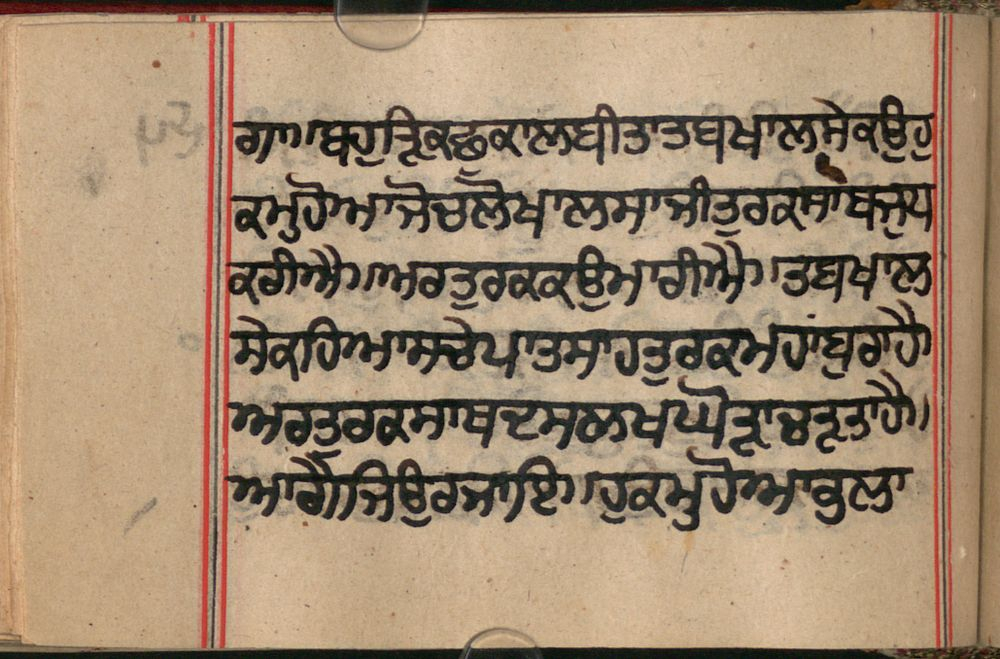 ਗਾ।।ਬਹੁਤ੍ਰਿਕਛੁਕਾਲਬੀਤਾਤਬਖਾਲਸੇਕਉਹੁ
ਕਮੁਹੋਆਜੋਚਲੋਖਾਲਸਾਜੀਤੁਰਕਸਾਂਬਜੁਧ
ਕਰੀਐ।।ਅਰਤੁਰਕਕਉਮਾਰੀਐ।।ਤਬਖਾਲ
ਸੇਕਹਿਆਸਚੇਪਾਤਸਾਹਤੁਰਕਮਹਾਂਬੁਰਾਹੈ।
ਅਰਤੁਰਕਸਾਥਦਸਲਖਘੋੜਾਚੜ੍ਹਤਾਹੈ।।
ਆਗੈਜਿਉਰਜਾਇ।।ਹੁਕਿਮੁਹੋਆਭੁਲਾ